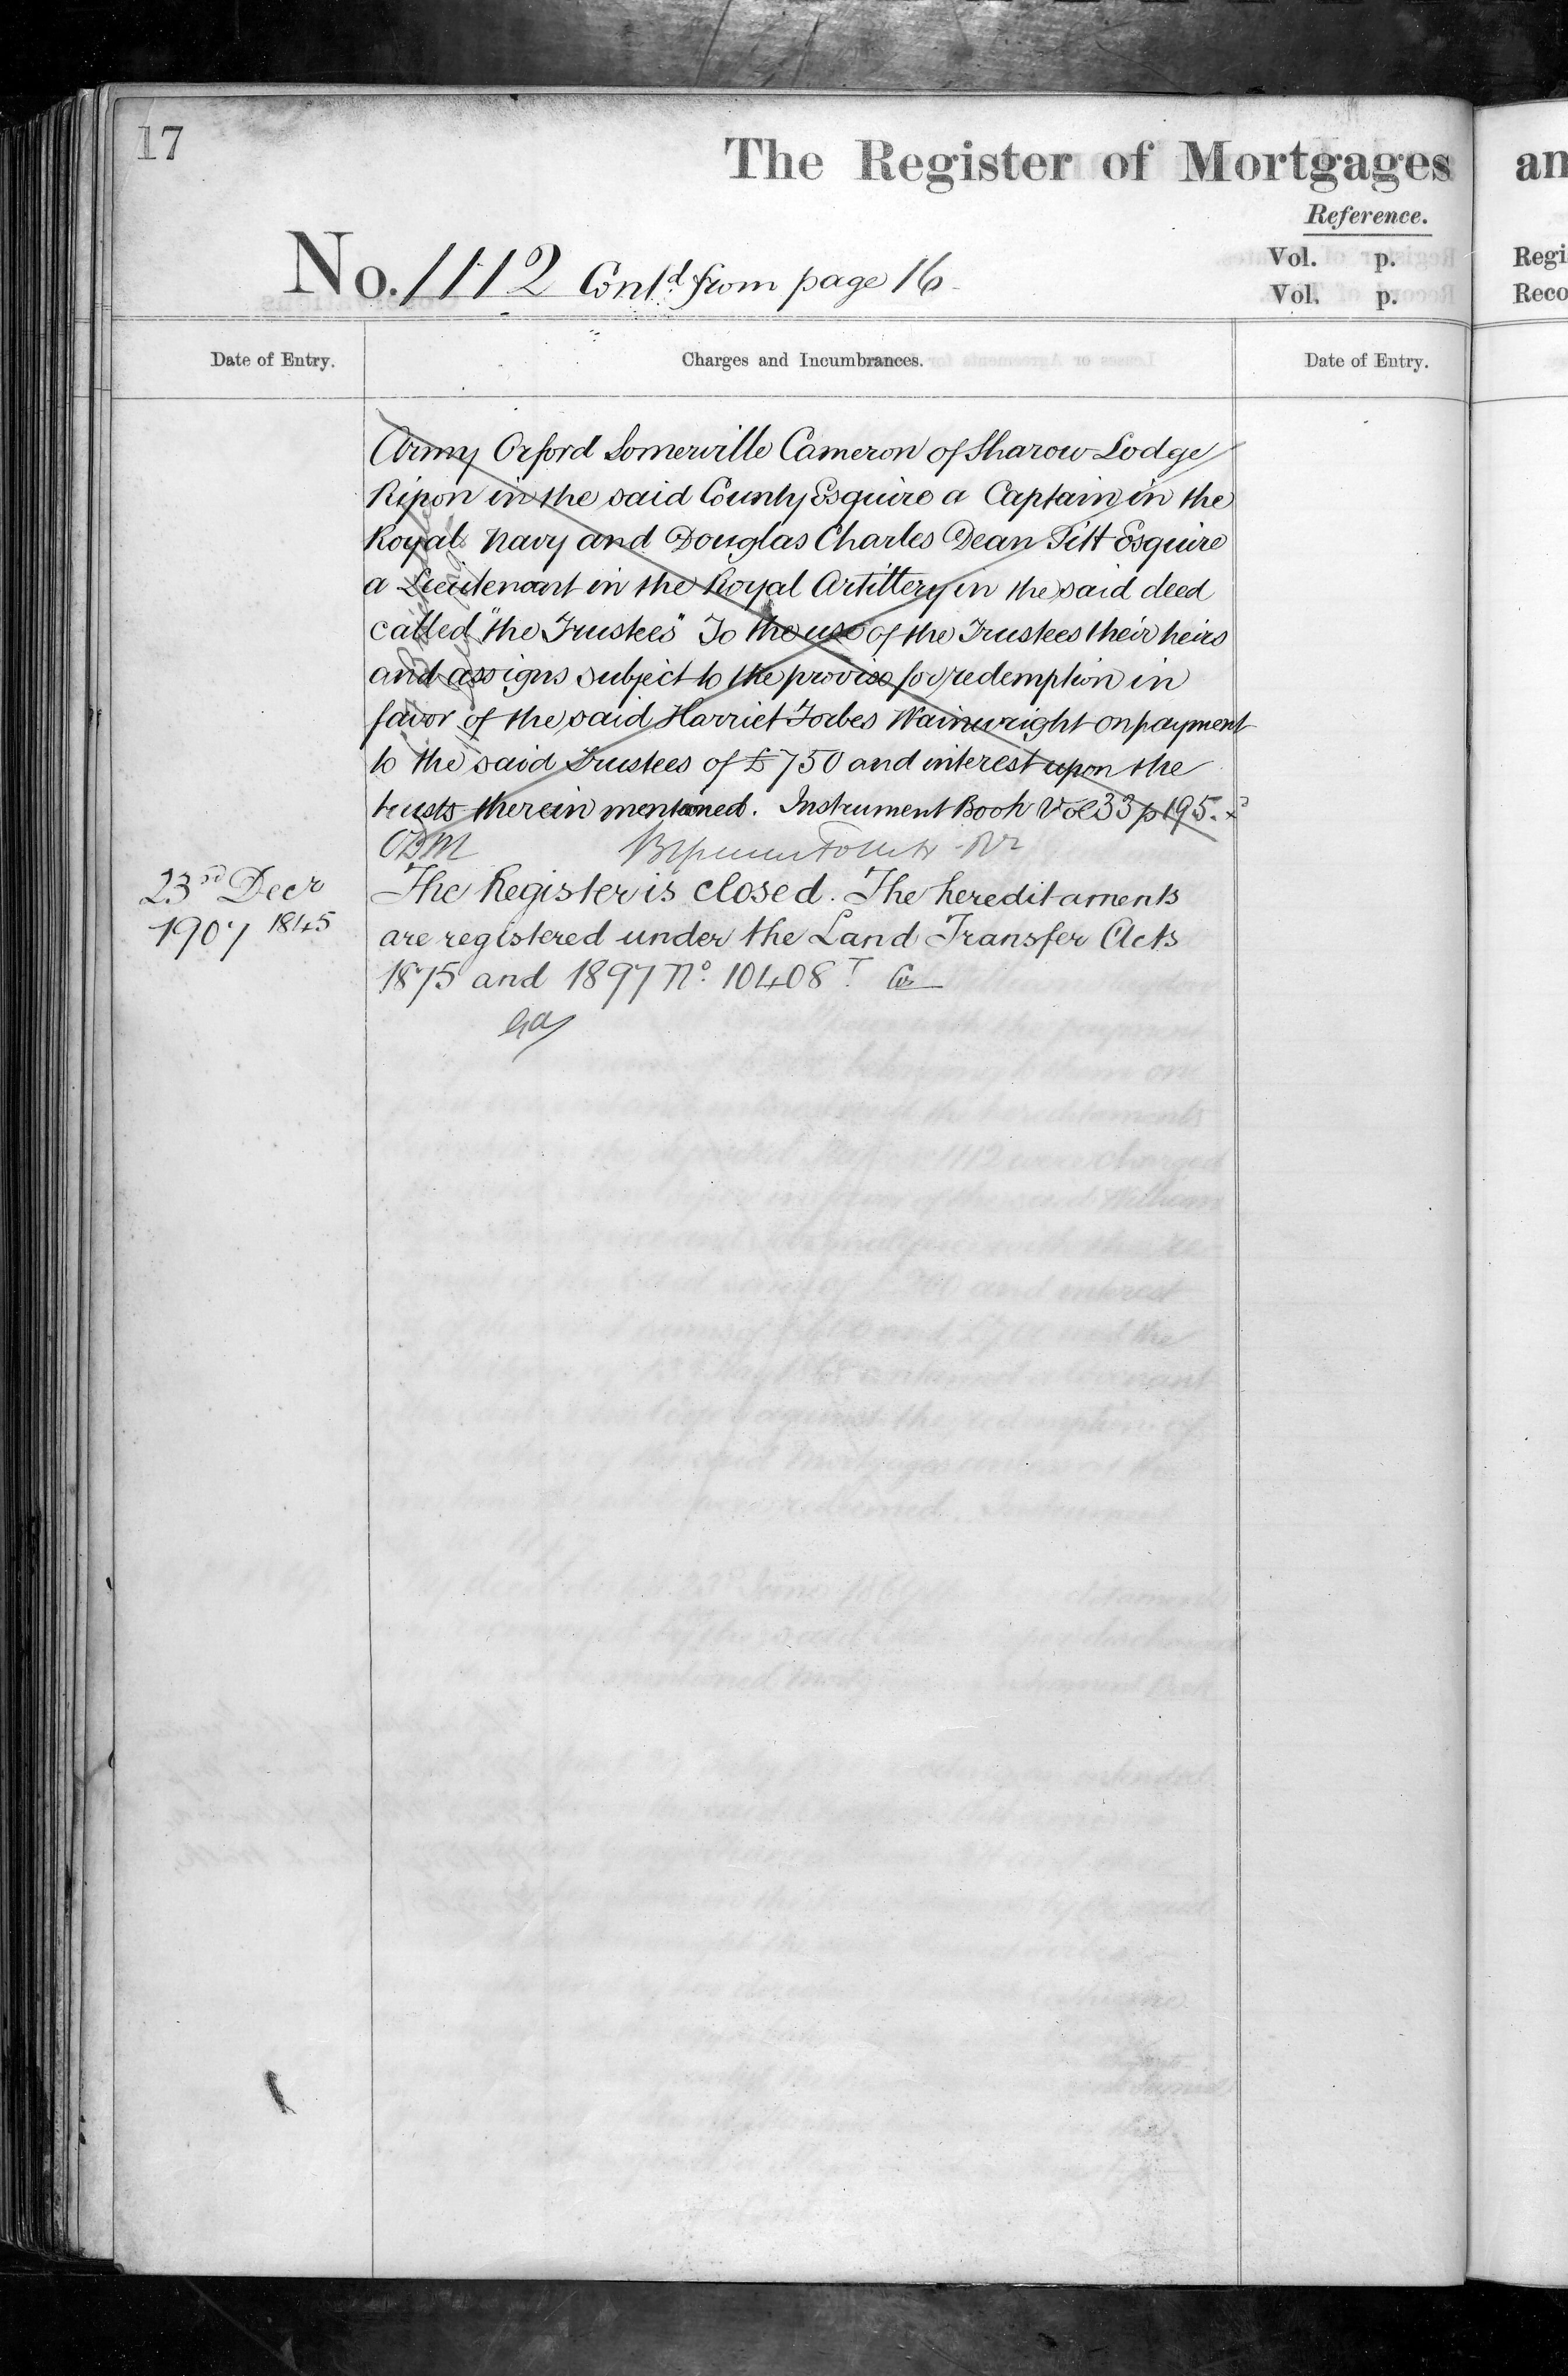 17
The Register of Mortgages
an
Reference.
No. 1112 Contd from page 16
Vol. p.
Regi
Vol. p.
Reco
Date of Entry.
Charges and Incumbrances.
Date of Entry.
Army Orford Somerville Cameron of Sharow Lodge
Ripon in the said County Esquire a Captain in the
Royal Navy and Douglas Charles Dean Pitt Esquire
a Lieutenant in the Royal Artillery in the said deed
called "the Trustees" To the use of the Trustees their heirs
and assigns subject to the proviso for redemption in
favor of the said Harriet Forbes Wainwright on payment
to the said Trustees of £750 and interest upon the
trusts therein mentioned. Instrument Book Vol 33 p 195.
23rd Decr
1907 1845
The Register is closed. The hereditaments
are registered under the Land Transfer Acts
1875 and 1897 No. 10408